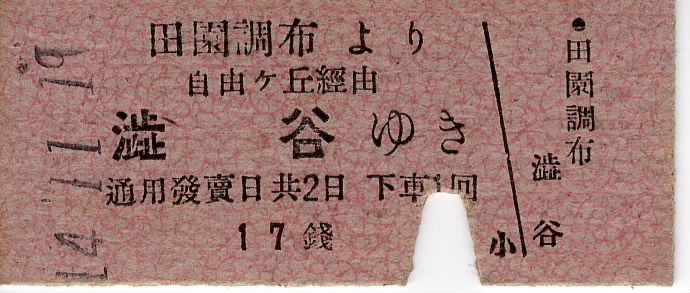 田園調布より
自由ヶ丘經由
澁谷ゆき
通用發賣日共2日 下車1回
17錢
小
●田園調布
澁谷
14.11.19